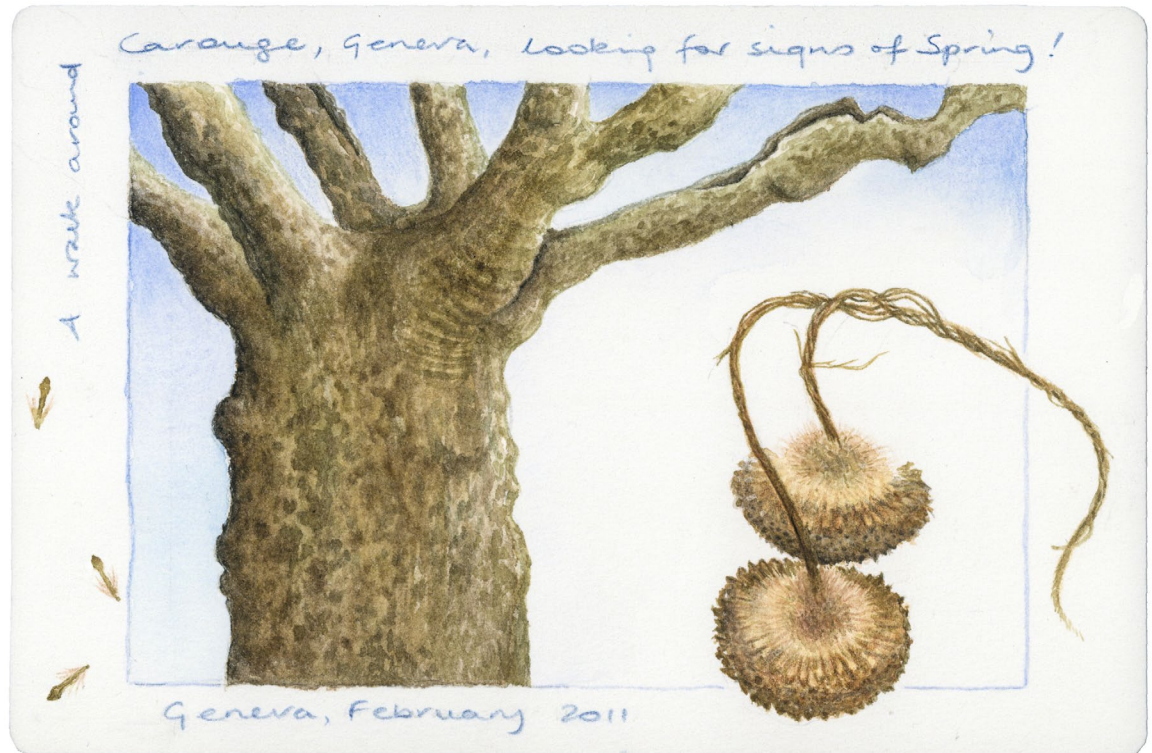 A walk around
Carouge, Geneva, looking for signs of Spring!
Geneva, February 2011